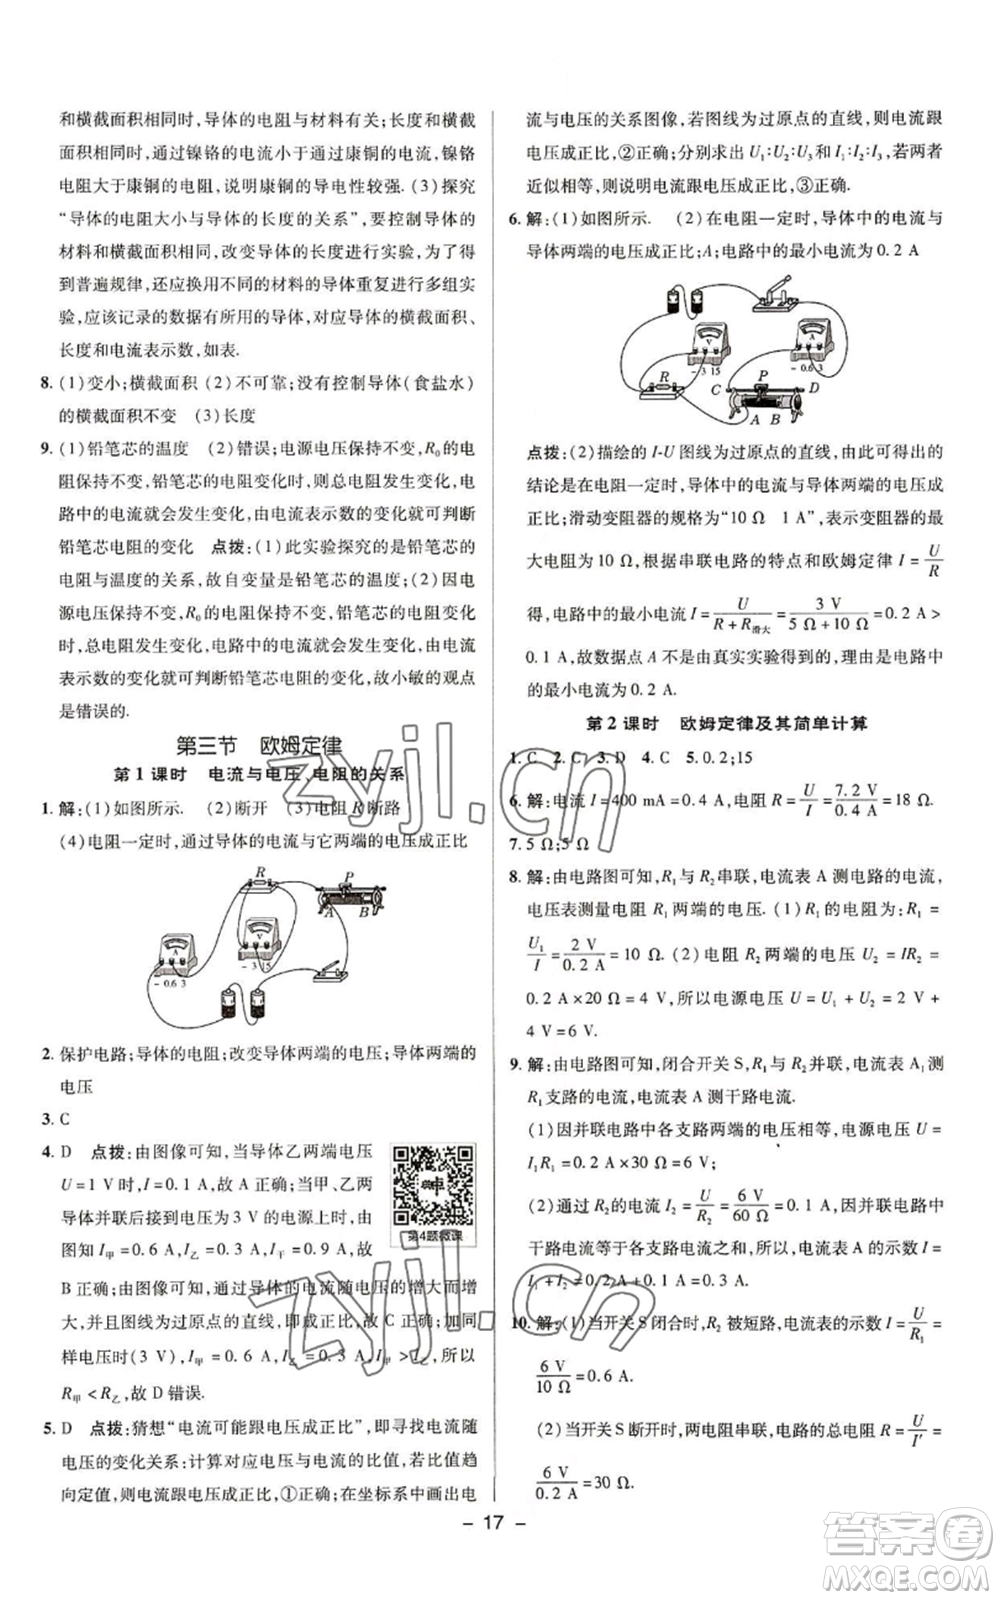 和横截面积相同时,导体的电阻与材料有关;长度和横截
面积相同时,通过镍铬的电流小于通过康铜的电流,镍铬
电阻大于康铜的电阻,说明康铜的导电性较强. (3)探究
“导体的电阻大小与导体的长度的关系”,要控制导体的
材料和横截面积相同,改变导体的长度进行实验,为了得
到普遍规律,还应换用不同的材料的导体重复进行多组实
验,应该记录的数据有所用的导体,对应导体的横截面积、
长度和电流表示数,如表.
8. (1)变小;横截面积 (2)不可靠;没有控制导体(食盐水)
的横截面积不变 (3)长度
9. (1)铅笔芯的温度 (2)错误;电源电压保持不变,R₀的电
阻保持不变,铅笔芯的电阻变化时,则总电阻发生变化,电
路中的电流就会发生变化,由电流表示数的变化就可判断
铅笔芯电阻的变化 点拨:(1)此实验探究的是铅笔芯的
电阻与温度的关系,故自变量是铅笔芯的温度;(2)因电
源电压保持不变,R₀的电阻保持不变,铅笔芯的电阻变化
时,总电阻发生变化,电路中的电流发生变化,由电流表
表示数的变化就可判断铅笔芯电阻的变化,故小敏的观点
是错误的.
第三节 欧姆定律
第 1 课时 电流与电压、电阻的关系
1. 解:(1)如图所示. (2)断开 (3)电阻 R 断路
(4)电阻一定时,通过导体的电流与它两端的电压成正比
R
P
A B
A
- 0.6 3
V
- 3 15
2. 保护电路;导体的电阻;改变导体两端的电压;导体两端的
电压
3. C
4. D 点拨:由图像可知,当导体乙两端电压
U = 1 V 时,I = 0.1 A,故 A 正确;当甲、乙两
导体并联后接到电压为 3 V 的电源上时,由
图知 I甲 = 0.6 A,I乙 = 0.3 A,I干 = 0.9 A,故
第4题微课
B 正确;由图像可知,通过导体的电流随电压的增大而增
大,并且图线为过原点的直线,即成正比,故 C 正确;加同
样电压时(3 V),I甲 = 0.6 A,I乙 = 0.3 A,I甲 > I乙,所以
R甲 < R乙,故 D 错误.
5. D 点拨:猜想“电流可能跟电压成正比”,即寻找电流随
电压的变化关系:计算对应电压与电流的比值,若比值趋
向定值,则电流跟电压成正比,①正确;在坐标系中画出电
流与电压的关系图像,若图线为过原点的直线,则电流跟
电压成正比,②正确;分别求出 U₁∶U₂∶U₃和 I₁∶I₂∶I₃,若两者
近似相等,则说明电流跟电压成正比,③正确.
6. 解:(1)如图所示. (2)在电阻一定时,导体中的电流与
导体两端的电压成正比;A;电路中的最小电流为 0.2 A
V
- 3 15
A
- 0.6 3
R
C P D
A B
点拨:(2)描绘的 I-U 图线为过原点的直线,由此可得出的
结论是在电阻一定时,导体中的电流与导体两端的电压成
正比;滑动变阻器的规格为“10 Ω 1 A”,表示变阻器的最
大电阻为 10 Ω,根据串联电路的特点和欧姆定律 I = U/R
得,电路中的最小电流 I = U/(R + R滑大) = 3 V/(5 Ω + 10 Ω) = 0.2 A >
0.1 A,故数据点 A 不是由真实实验得到的,理由是电路中
的最小电流为 0.2 A.
第 2 课时 欧姆定律及其简单计算
1. C 2. C 3. D 4. C 5. 0.2;15
6. 解:电流 I = 400 mA = 0.4 A,R = U/I = 7.2 V/0.4 A = 18 Ω.
7. 5 Ω;5 Ω
8. 解:由电路图可知,R₁ 与 R₂ 串联,电流表 A 测电路的电流,
电压表测量电阻 R₁ 两端的电压. (1) R₁的阻值为:R₁ =
U₁/I = 2 V/0.2 A = 10 Ω. (2)电阻 R₂ 两端的电压 U₂ = IR₂ =
0.2 A × 20 Ω = 4 V,所以电源电压 U = U₁ + U₂ = 2 V +
4 V = 6 V.
9. 解:由电路图可知,闭合开关 S,R₁ 与 R₂ 并联,电流表 A₁ 测
R₁ 支路的电流,电流表 A 测干路电流.
(1)因并联电路中各支路两端的电压相等,电源电压 U =
I₁R₁ = 0.2 A × 30 Ω = 6 V;
(2)通过 R₂ 的电流 I₂ = U/R₂ = 6 V/60 Ω = 0.1 A,因并联电路中
干路电流等于各支路电流之和,所以,电流表 A 的示数 I =
I₁ + I₂ = 0.2 A + 0.1 A = 0.3 A.
10. 解:(1)当开关 S 闭合时,R₂ 被短路,电流表的示数 I = U/R₁ =
6 V/10 Ω = 0.6 A.
(2)当开关 S 断开时,两电阻串联,电路的总电阻 R = U/I′ =
6 V/0.2 A = 30 Ω.
- 17 -
zyjl.cn
zyjl.cn
答案圈
MXQE.COM